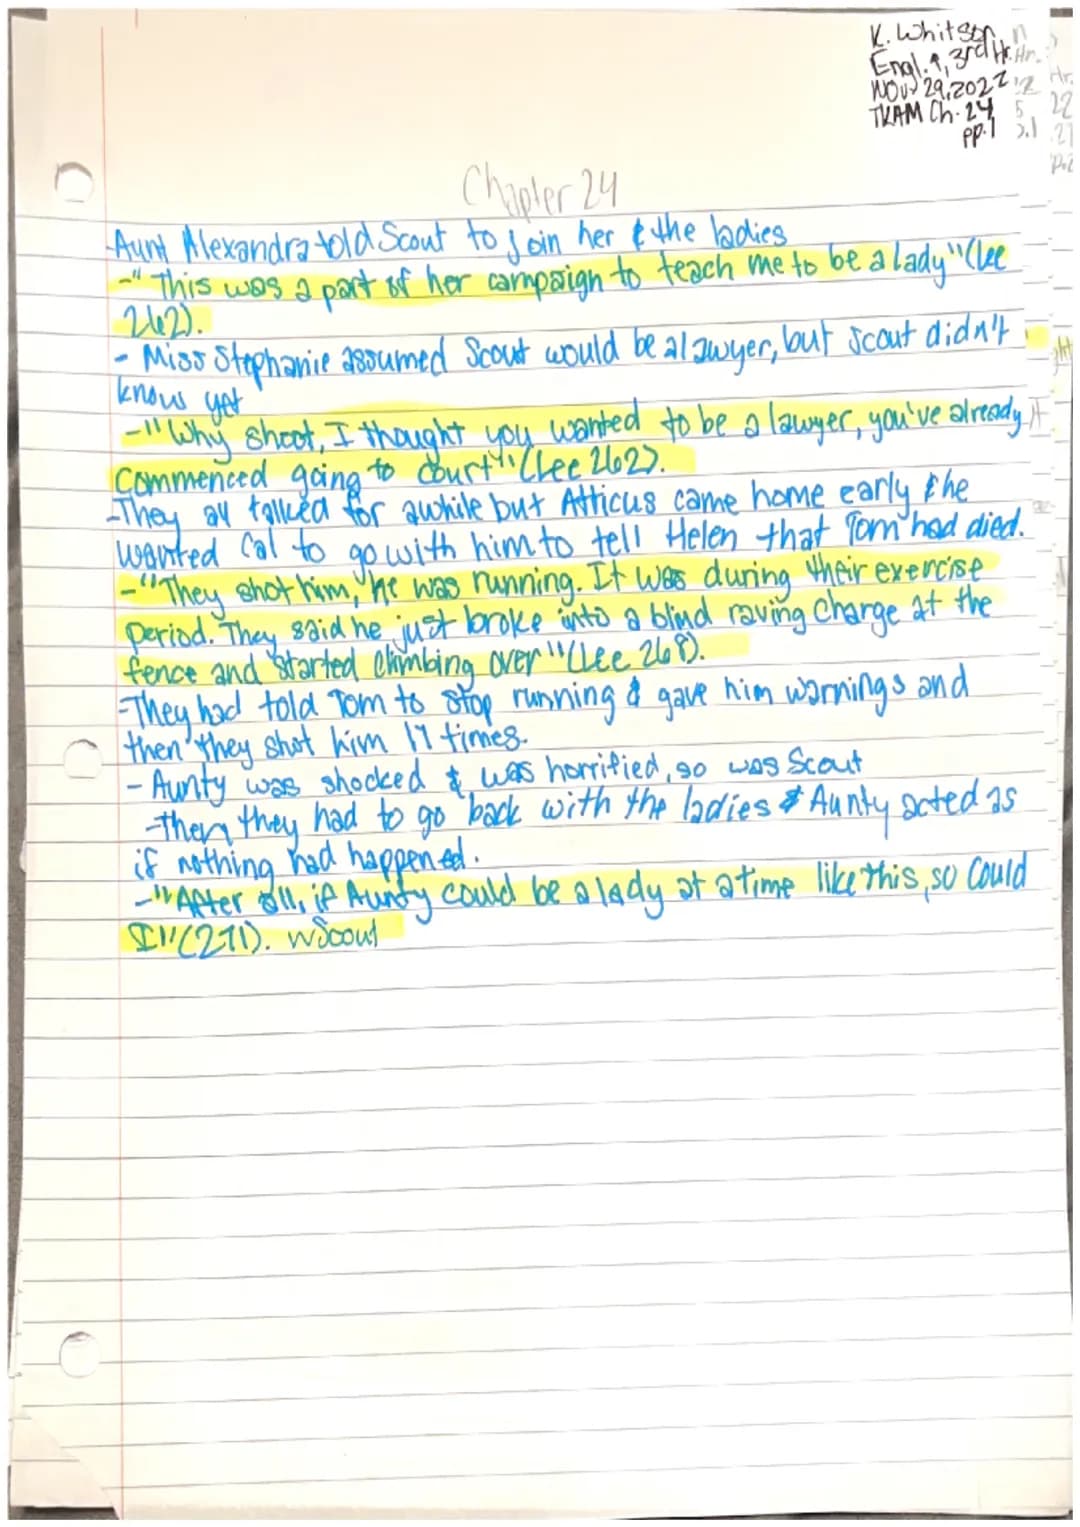 K. Whitson
Engl. 9, 3rd Hr.
Nov 29, 2022
TKAM Ch. 24
pp. 1
Chapter 24
-Aunt Alexandra told Scout to join her & the ladies
-"This was a part of her campaign to teach me to be a lady" (Lee
262).
- Miss Stephanie assumed Scout would be a lawyer, but Scout didn't
know yet
-"Why shoot, I thought you wanted to be a lawyer, you've already
commenced going to court" (Lee 262).
-They all talked for awhile but Atticus came home early & he
wanted Cal to go with him to tell Helen that Tom had died.
-"They shot him, he was running. It was during their exercise
period. They said he just broke into a blind raving charge at the
fence and started climbing over" (Lee 268).
-They had told Tom to stop running & gave him warnings and
then they shot him 17 times.
- Aunty was shocked & was horrified, so was Scout
-Then they had to go back with the ladies & Aunty acted as
if nothing had happened.
-"After all, if Aunty could be a lady at a time like this, so could
I" (271). Scout